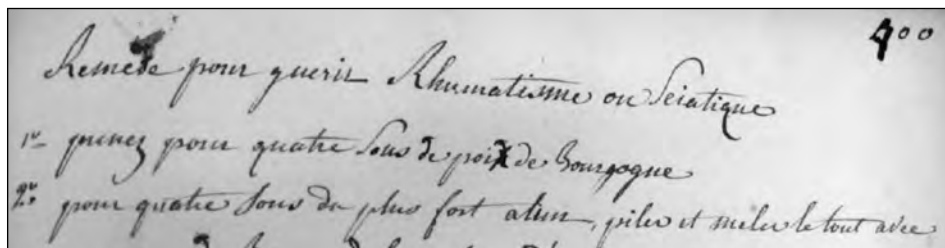 400
Remede pour guerir Rhumatisme ou Sciatique
1º prenez pour quatre Sous de poix de Bourgogne
2º pour quatre Sous du plus fort alun, piler et meler le tout avec